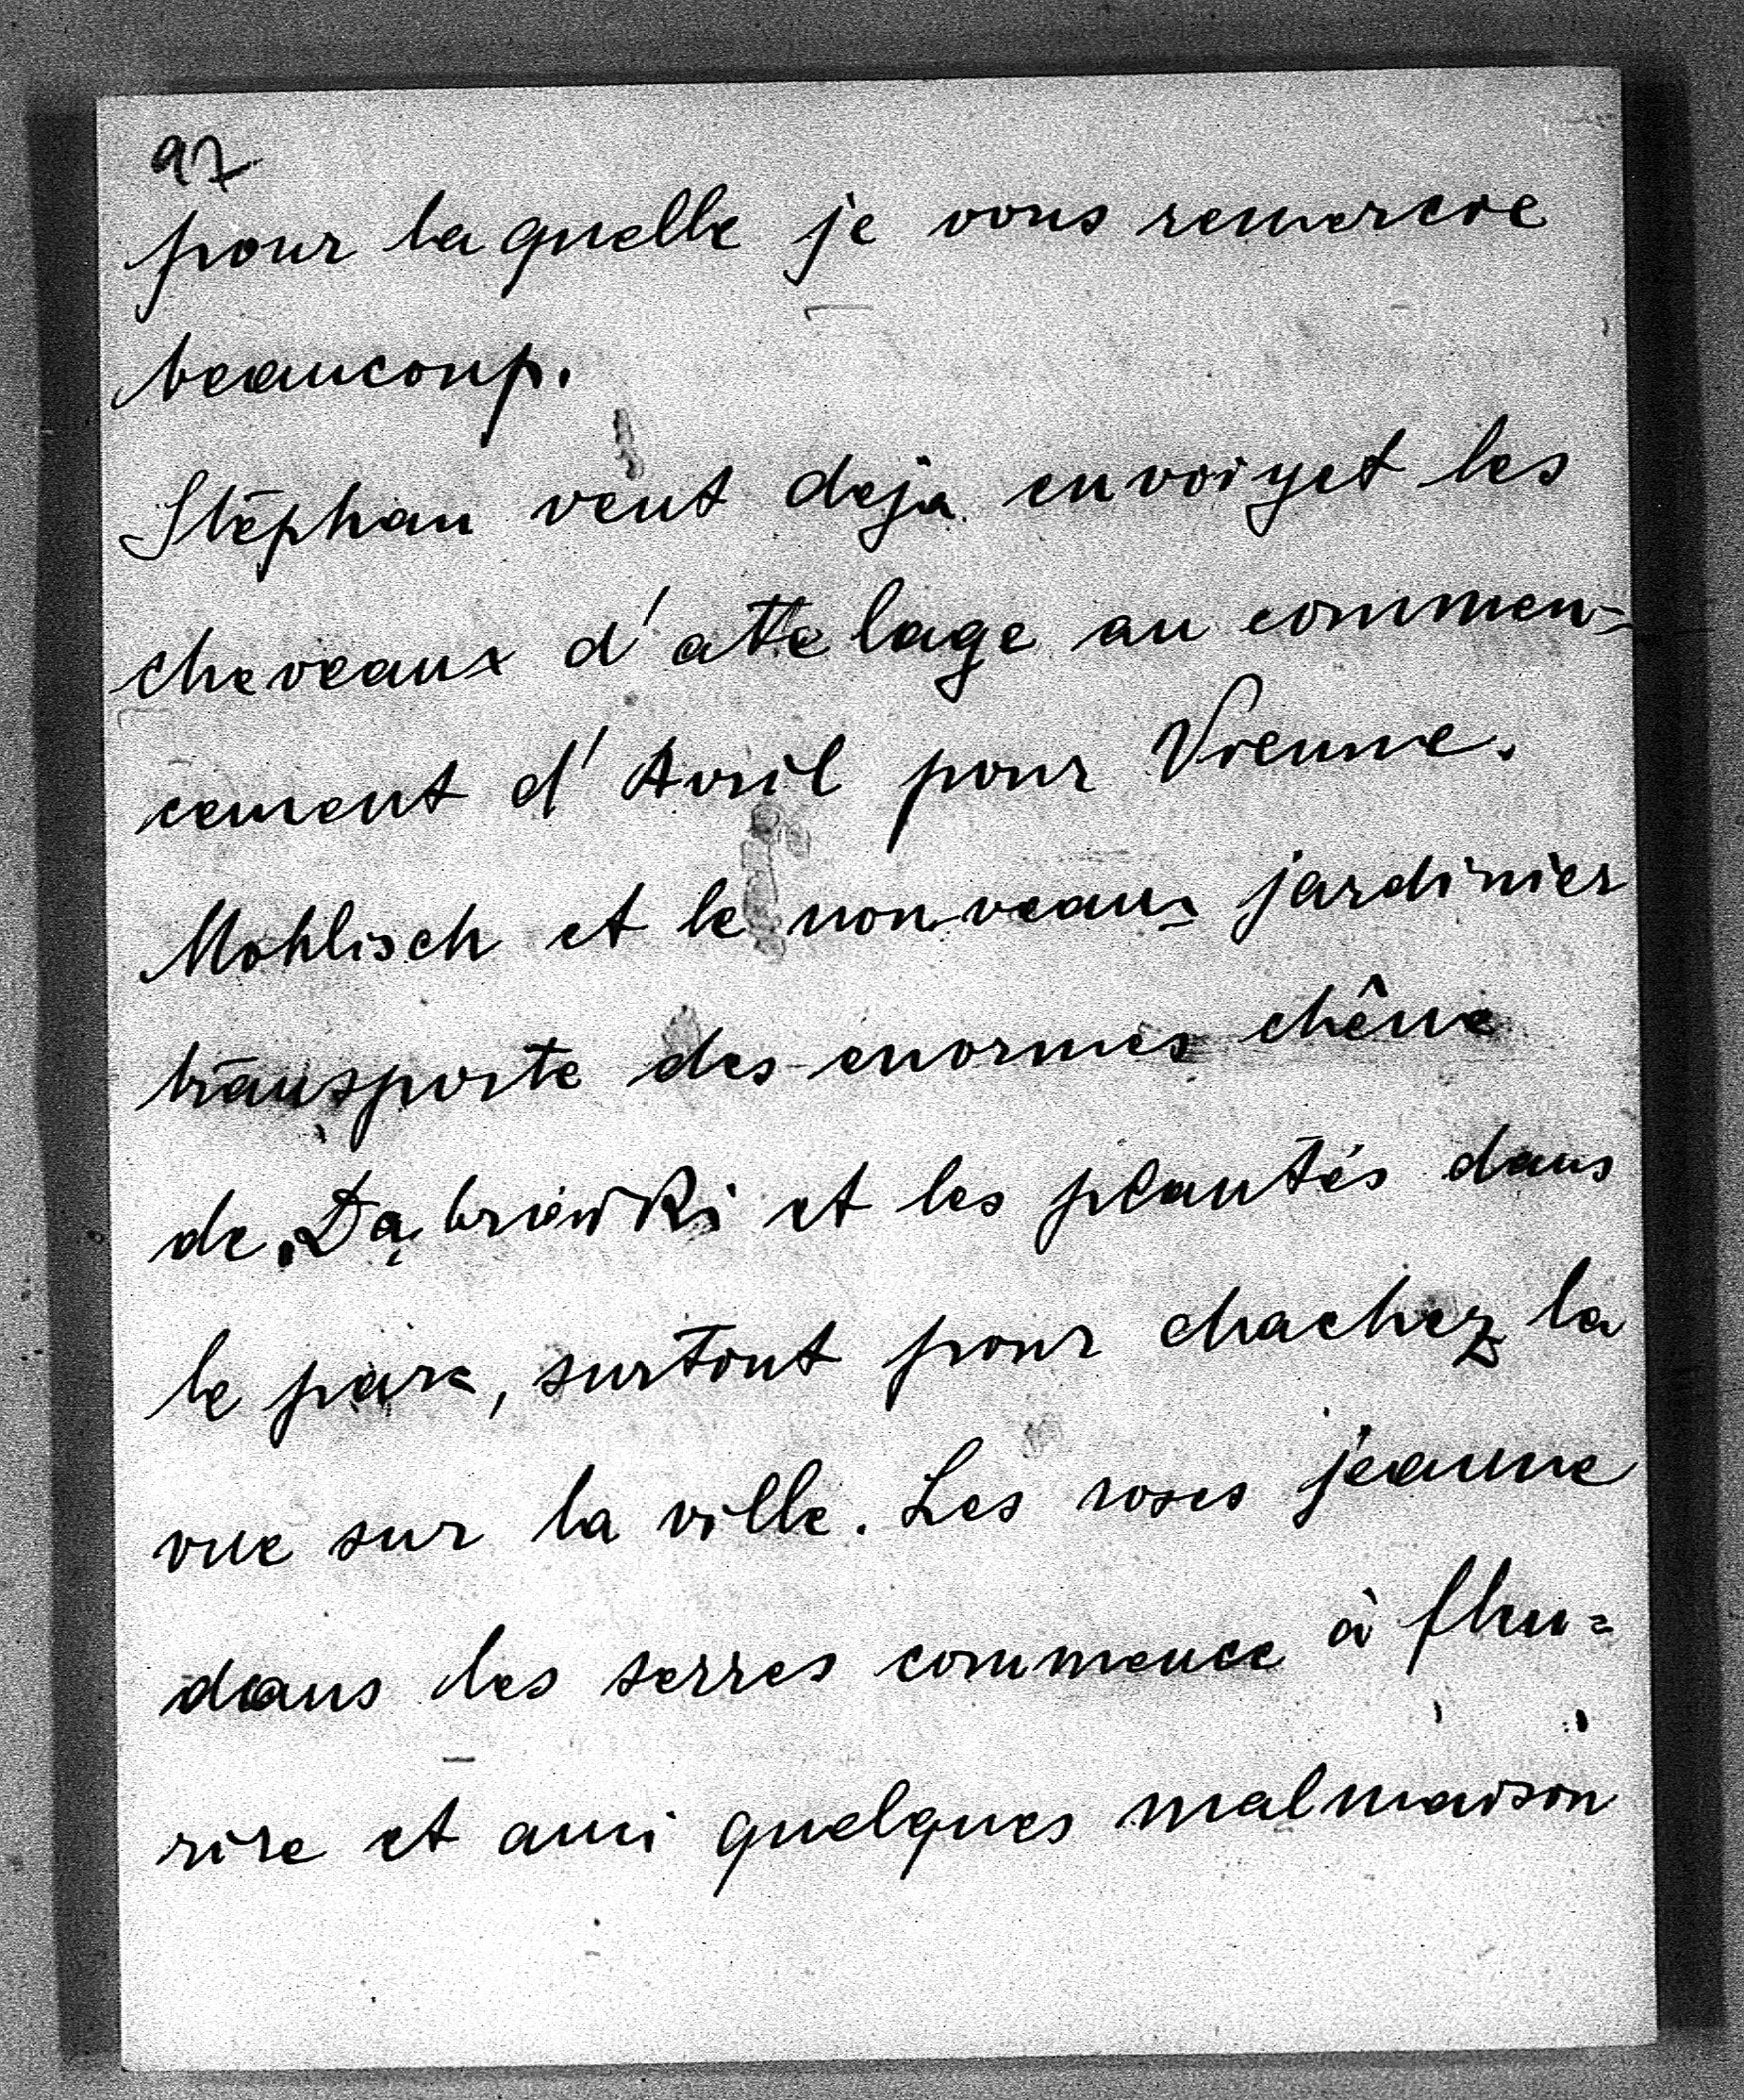 97
pour laquelle je vous remercie
beaucoup.
Stéphan veut deja envoiyet les
cheveaux d'attelage au commen-
cement d'Avril pour Vienne.
Mohlisch et le nouveaux jardinier
transporte des enormes chêne
de Dąbrówki et les plantés dans
le parc, surtout pour chachez la
vue sur la ville. Les roses jeaune
dans les serres commence à fleu=
rire et aussi quelques malmaison